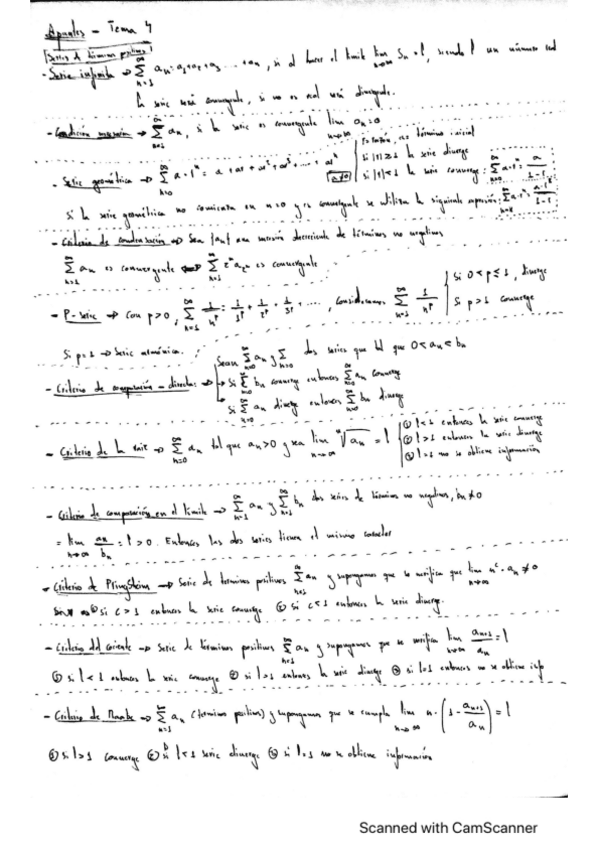 Apuntes - Tema 4
[Series de términos positivos]
- Serie infinita → ∑_{n=1}^{∞} a_n = a_1 + a_2 + a_3 .... + a_n, si al hacer el límite lim_{n→∞} S_n = l, siendo l un número real
la serie será convergente, si no es real será divergente.
- Condición necesaria → ∑_{n=1}^{∞} a_n, si la serie es convergente lim_{n→∞} a_n = 0
- Serie geométrica → ∑_{n=0}^{∞} a·r^n = a + ar + ar^2 + ar^3 + .... + ar^n
[a≠0] r = razón, a = término inicial
si |r| ≥ 1 la serie diverge
si |r| < 1 la serie converge: ∑_{n=0}^{∞} a·r^n = a/(1-r)
si la serie geométrica no comienza en n=0 y es convergente se utiliza la siguiente expresión: ∑_{n=k}^{∞} a·r^n = a·r^k/(1-r)
- Criterio de condensación → Sea {an} una sucesión decreciente de términos no negativos
∑_{n=1}^{∞} a_n es convergente ⟺ ∑_{n=1}^{∞} 2^n a_{2^n} es convergente
- P-serie → Con p>0, ∑_{n=1}^{∞} 1/n^p = 1/1^p + 1/2^p + 1/3^p + ...., consideramos ∑_{n=1}^{∞} 1/n^p
Si 0<p≤1, diverge
Si p>1 converge
Si p=1 → Serie armónica.
- Criterio de comparación-directa: → Sean ∑_{n=0}^{∞} a_n y ∑_{n=0} dos series que tal que 0<a_n≤b_n
→ Si ∑_{n=0}^{∞} b_n converg entonces ∑_{n=0}^{∞} a_n converg
→ Si ∑_{n=0}^{∞} a_n diverge entonces ∑_{n=0}^{∞} b_n diverg
- Criterio de la raíz → ∑_{n=0}^{∞} a_n tal que a_n>0 y sea lim_{n→∞} ⁿ√a_n = l
① l<1 entonces la serie converge
② l>1 entonces la serie diverge
③ l=1 no se obtiene información
- Criterio de comparación en el límite → ∑_{n=1}^{∞} a_n y ∑_{n=1}^{∞} b_n dos series de términos no negativos, b_n≠0
= lim_{n→∞} a_n/b_n = l > 0. Entonces las dos series tienen el mismo carácter
- Criterio de Pringsheim → Serie de términos positivos ∑_{n=1}^{∞} a_n y supongamos que se verifica que lim_{n→∞} n^c · a_n ≠ 0
① si c>1 entonces la serie converge ② si c≤1 entonces la serie diverge.
- Criterio del cociente → serie de términos positivos ∑_{n=1}^{∞} a_n y supongamos que se verifica lim_{n→∞} a_{n+1}/a_n = l
① si l<1 entonces la serie converge ② si l>1 entonces la serie diverge ③ si l=1 entonces no se obtiene info
- Criterio de Raabe → ∑_{n=1}^{∞} a_n (término positivo) y supongamos que se cumpla lim_{n→∞} n·(1 - a_{n+1}/a_n) = l
① si l>1 converge ② si l<1 serie diverge ③ si l=1 no se obtiene información
Scanned with CamScanner